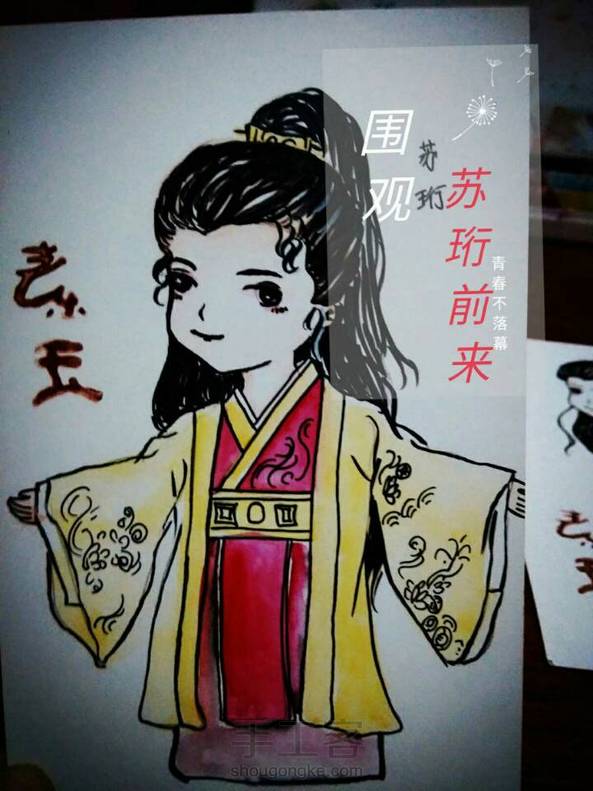 围观
苏珩
苏珩前来
青春不落幕
手工客
shougongke.com